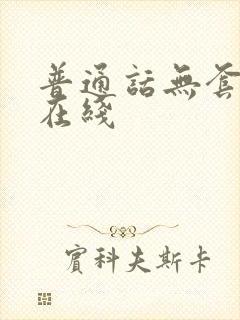 普通話無套
在綫
賓科夫斯卡